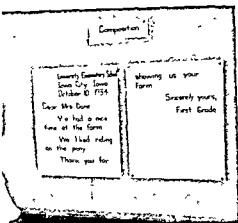 Composition
University Elementary School
Iowa City Iowa
October 10 1934
Dear Mrs Dane
We had a nice
time at the farm
We liked riding
on the pony
Thank you for
showing us your
farm
Sincerely yours,
First Grade